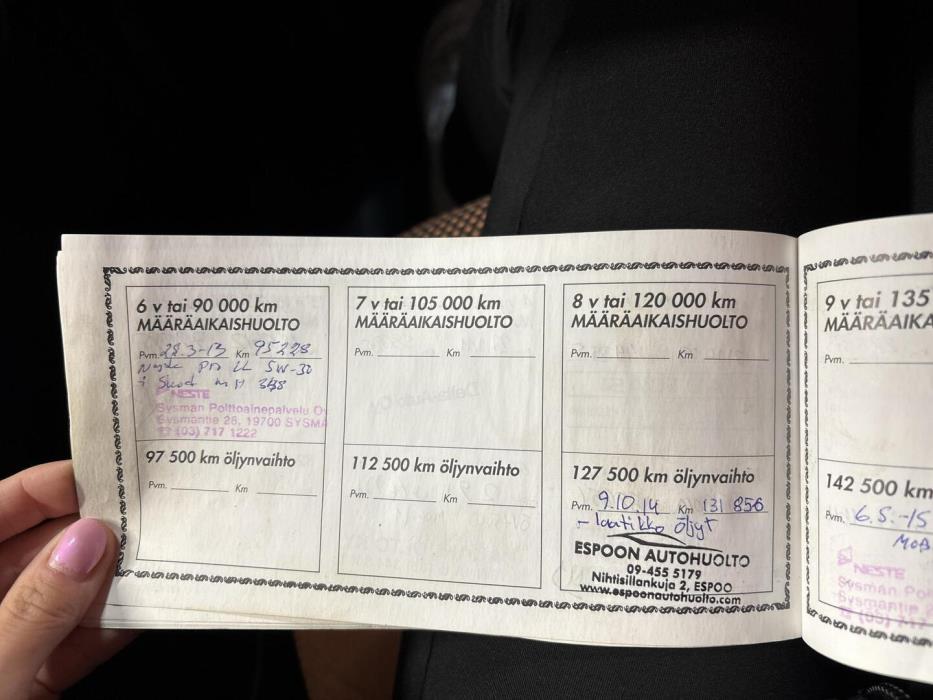 6 v tai 90 000 km
MÄÄRÄAIKAISHUOLTO
Pvm. 28.3-13 Km 95228
Neste Pro LL 5W-30
NESTE
Sysmän Polttoainepalvelu O
Sysmäntie 26, 19700 SYSMÄ
☎ (03) 717 1222
97 500 km öljynvaihto
Pvm. Km
7 v tai 105 000 km
MÄÄRÄAIKAISHUOLTO
Pvm. Km
112 500 km öljynvaihto
Pvm. Km
8 v tai 120 000 km
MÄÄRÄAIKAISHUOLTO
Pvm. Km
127 500 km öljynvaihto
Pvm. 9.10.14 Km 131 856
- laatikko öljyt
ESPOON AUTOHUOLTO
09-455 5179
Nihtisillankuja 2, ESPOO
www.espoonautohuolto.com
9 v tai 135
MÄÄRÄAIKA
Pvm.
142 500 km
Pvm. 6.5.-15
MOB
NESTE
Sysmän Pol
Sysmäntie 2
☎ (03) 717